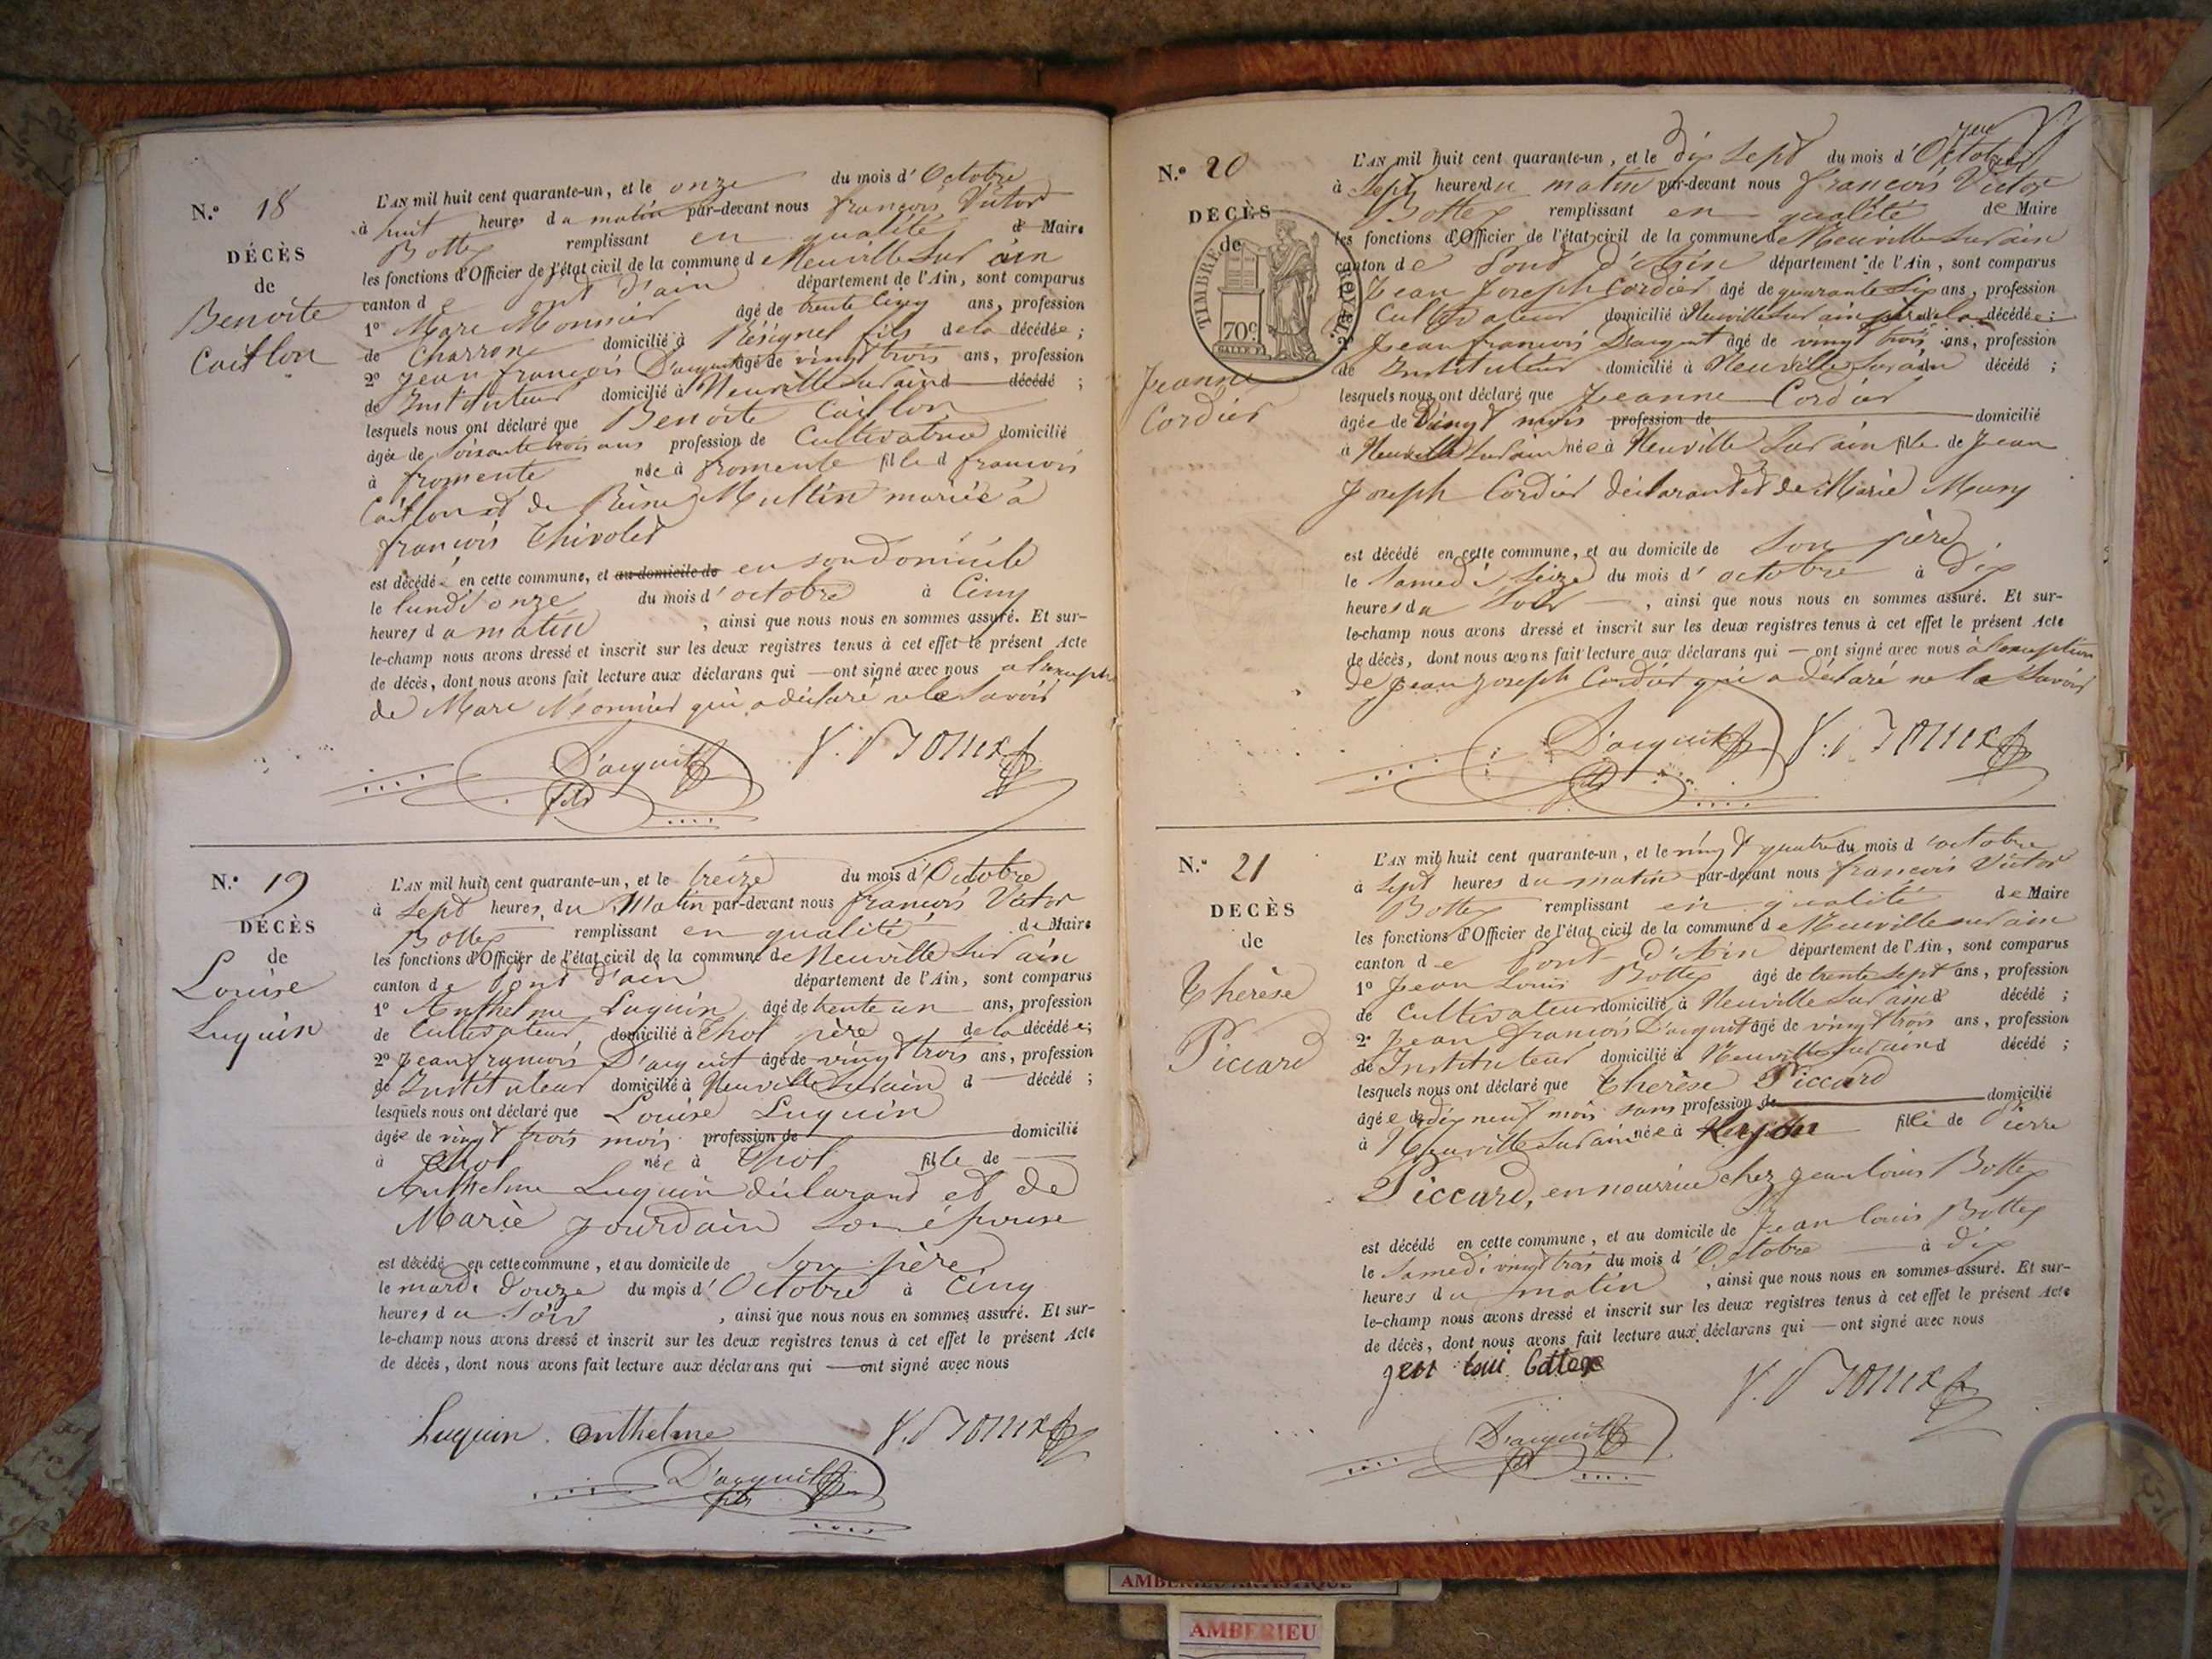 N.º 18
DÉCÈS
de
Benoite
Caillon
L'AN mil huit cent quarante-un, et le onze du mois d'Octobre
à huit heures du matin par-devant nous françois Victor
Bottex remplissant en qualité de Maire
les fonctions d'Officier de l'état civil de la commune de Neuville Sur ain
canton de pont d'ain département de l'Ain, sont comparus
1º Marc Monnier âgé de trente Cinq ans, profession
de Charron domicilié à Résignel fils de la décédée ;
2º Jean françois D'arguit âgé de vingt trois ans, profession
de Instituteur domicilié à Neuville Sur ain d décédé ;
lesquels nous ont déclaré que Benoite Caillon
âgée de Soixante trois ans profession de Cultivatrice domicilié
à fromente née à fromente fille d françois
Caillon et de Reine Multin mariée à
françois Thivolet
est décédé en cette commune, et au domicile de en son domicile
le lundi onze du mois d'octobre à Cinq
heures du matin , ainsi que nous nous en sommes assuré. Et sur-
le-champ nous avons dressé et inscrit sur les deux registres tenus à cet effet le présent Acte
de décès, dont nous avons fait lecture aux déclarans qui — ont signé avec nous a l'exception
de Marc Monnier qui a déclaré ne le Savoir
D'arguit fils
V. Bottex
N.º 19
DÉCÈS
de
Louise
Luquin
L'AN mil huit cent quarante-un, et le treize du mois d'Octobre
à Sept heures du Matin par-devant nous françois Victor
Bottex remplissant en qualité de Maire
les fonctions d'Officier de l'état civil de la commune de Neuville Sur ain
canton de pont d'ain département de l'Ain, sont comparus
1º Anthelme Luquin âgé de trente un ans, profession
de Cultivateur domicilié à Thol père de la décédée ;
2º Jean françois D'arguit âgé de vingt trois ans, profession
de Instituteur domicilié à Neuville Sur ain d — décédé ;
lesquels nous ont déclaré que Louise Luquin
âgée de vingt trois mois profession de domicilié
à Thol née à Thol fille de
Anthelme Luquin déclarant et de
Marie Jourdain Son épouse
est décédé en cette commune, et au domicile de Son père
le mardi Douze du mois d'Octobre à Cinq
heures du Soir , ainsi que nous nous en sommes assuré. Et sur-
le-champ nous avons dressé et inscrit sur les deux registres tenus à cet effet le présent Acte
de décès, dont nous avons fait lecture aux déclarans qui — ont signé avec nous
Luquin Anthelme
V. Bottex
D'arguit fils
N.º 20
DÉCÈS
de
TIMBRE ROYAL.
70 c.
Jeanne
Cordier
L'AN mil huit cent quarante-un, et le dix Sept du mois d'Octobre
à Sept heures du matin par-devant nous françois Victor
Bottex remplissant en qualité de Maire
les fonctions d'Officier de l'état civil de la commune de Neuville Sur ain
canton de Pont d'Ain département de l'Ain, sont comparus
Jean Joseph Cordier âgé de quarante Six ans, profession
Cultivateur domicilié à Neuville Sur ain père de la décédée ;
Jean françois D'arguit âgé de vingt trois ans, profession
de Instituteur domicilié à Neuville Sur ain décédé ;
lesquels nous ont déclaré que Jeanne Cordier
âgée de Vingt mois profession de domicilié
à Neuville Sur ain née à Neuville Sur ain fille de Jean
Joseph Cordier déclarant et de Marie Muny
est décédé en cette commune, et au domicile de Son père
le Samedi Seize du mois d'octobre à dix
heures du Soir , ainsi que nous nous en sommes assuré. Et sur-
le-champ nous avons dressé et inscrit sur les deux registres tenus à cet effet le présent Acte
de décès, dont nous avons fait lecture aux déclarans qui — ont signé avec nous à l'exception
de Jean Joseph Cordier qui a déclaré ne le Savoir
D'arguit fils
V. Bottex
N.º 21
DECÈS
de
Thérèse
Piccard
L'AN mil huit cent quarante-un, et le vingt quatre du mois d'octobre
à Sept heures du matin par-devant nous françois Victor
Bottex remplissant en qualité de Maire
les fonctions d'Officier de l'état civil de la commune de Neuville sur ain
canton de Pont D'Ain département de l'Ain, sont comparus
1º Jean Louis Bottex âgé de trente Sept ans, profession
de Cultivateur domicilié à Neuville Sur ain d décédé ;
2º Jean françois D'arguit âgé de vingt trois ans, profession
de Instituteur domicilié à Neuville Sur ain d décédé ;
lesquels nous ont déclaré que Therèse Piccard
âgée de dix neuf mois sans profession de domicilié
à Neuville Sur ain née à fille de Pierre
Piccard, en nourrice chez Jean Louis Bottex
est décédé en cette commune, et au domicile de Jean Louis Bottex
le Samedi vingt trois du mois d'Octobre à dix
heures du matin , ainsi que nous nous en sommes assuré. Et sur-
le-champ nous avons dressé et inscrit sur les deux registres tenus à cet effet le présent Acte
de décès, dont nous avons fait lecture aux déclarans qui — ont signé avec nous
Jean Loui Bottex
V. Bottex
D'arguit fils
AMBERIEU ARTISTIQUE
AMBERIEU